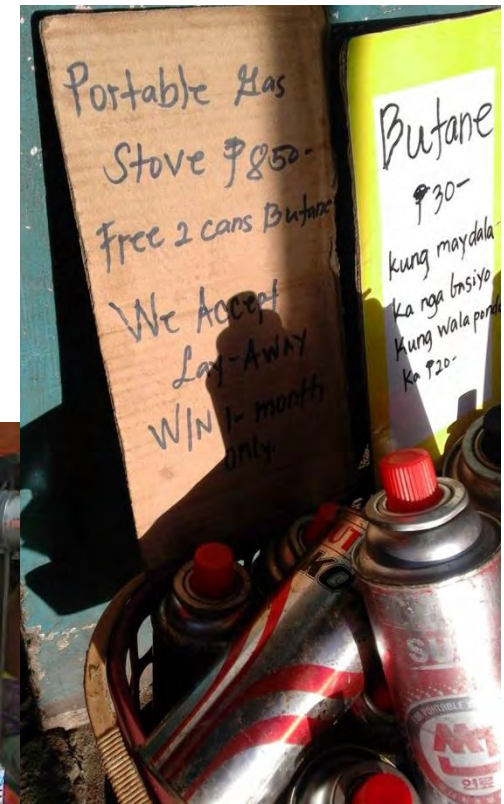 Portable Gas
Stove ₱850-
Free 2 cans Butane
We Accept
Lay-Away
W/N 1-month
only.
Butane
₱30-
kung maydala-
ka nga basiyo
kung wala pondo
ka ₱20-
SU
PORTABLE
연료